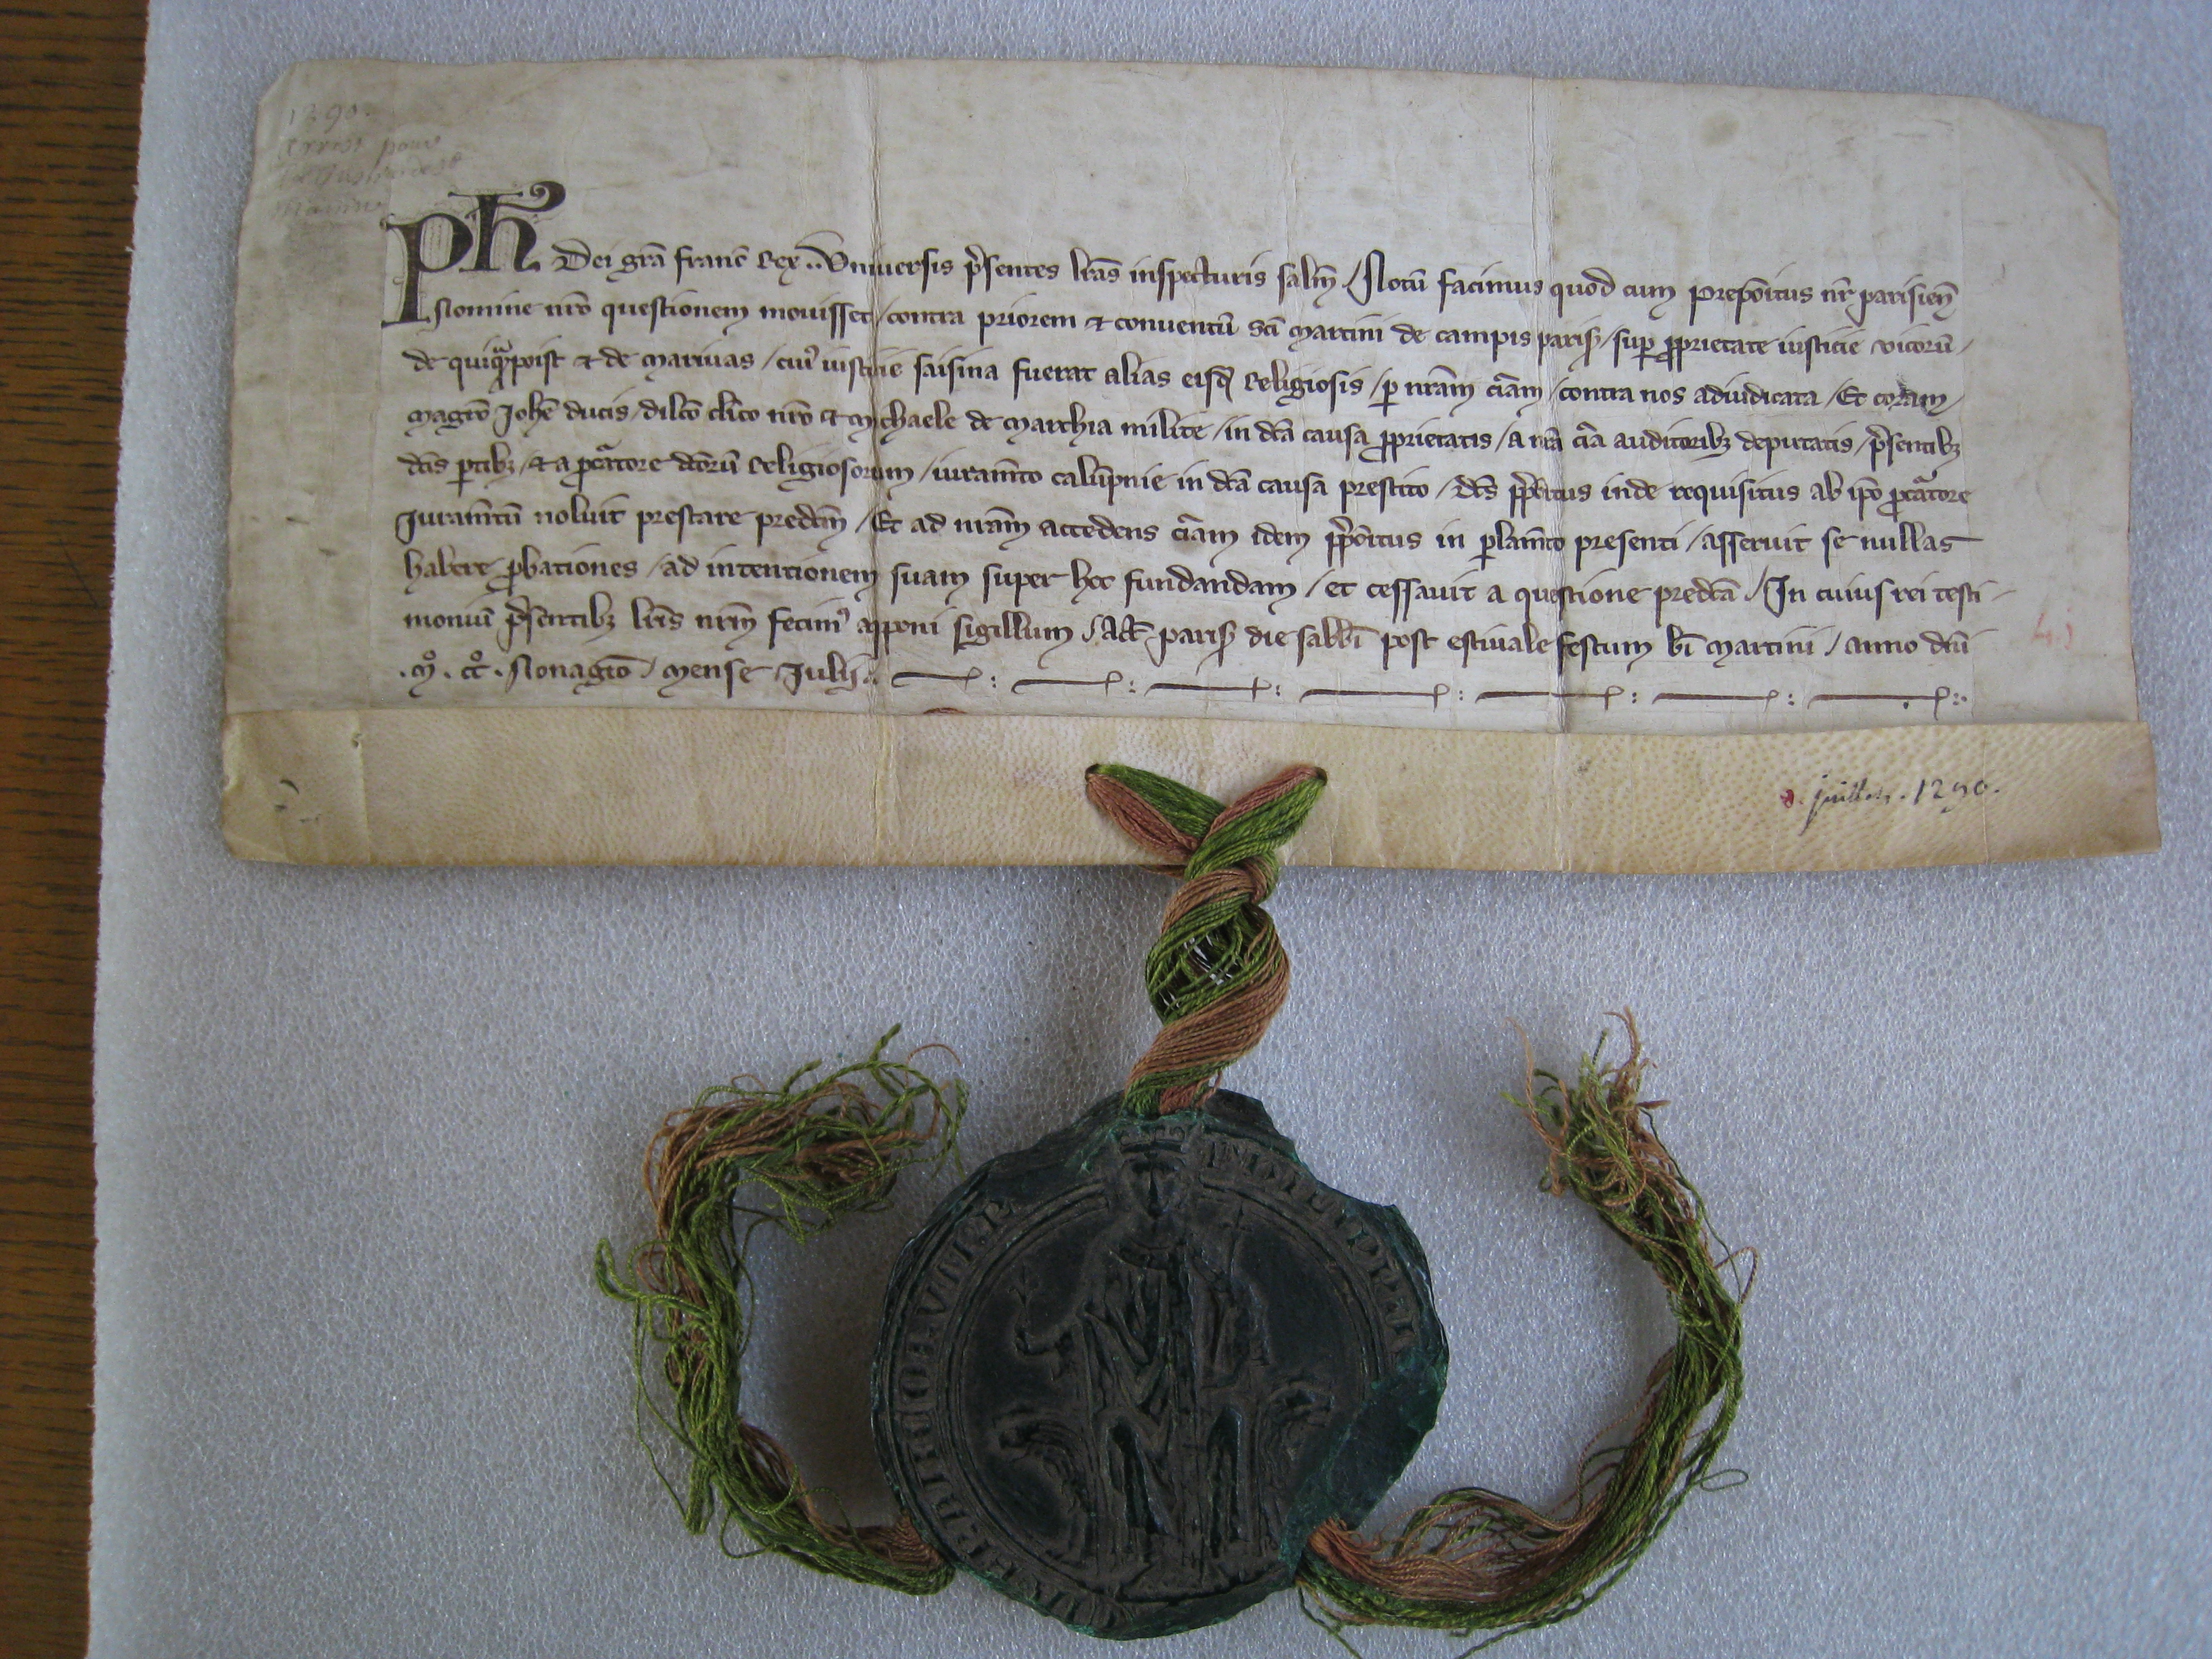 1290.
pour
Ph Dei grã franc̃ Rex .. Uniuersis p̃sentes lrãs inspecturis salt̃m / Notũ facimus quod cum Prepõitus nr̃ parisieñ
Nomine nrõ questionem mouisset / contra priorem & conuentũ Sc̃i Martini de campis parisꝭ / sup ꝓprietate iusticie vicorũ /
de quiqᷓpoist & de Mariuas / cuiꝰ iusticie saisina fuerat alias eisdẽ Religiosis / ꝑ nrãm cũriam / contra nos adiudicata / Et coram /
Magrõ Iohẽ ducis / dilc̃o cl̃ico nrõ & Michaele de Marchia milite / in dc̃a causa ꝓprietatis / a nrã cũria auditoribꝫ deputatis / p̃sentibꝫ
dc̃is ꝑtibꝫ / & a ꝓcᷓatore dc̃orũ Religiosorum / iuramẽto calũpnie in dc̃a causa prestito / dc̃s p̃põitus inde requisitus ab ip̃o ꝓcᷓatore
Iuramẽtũ noluit prestare predc̃m / Et ad nrãm accedens cũriam idem p̃põitus in ꝑlamẽto presenti / asseruit se nullas
habere ꝓbationes / ad intentionem suam super hoc fundandam / et cessauit a questione predc̃a / In cuius rei testi-
moniũ p̃sentibꝫ lrĩs nrm̃ fecimꝰ apponi sigillum / Act̃ parisꝭ die sabb̃i post estiuale festum bĩ Martini / anno dñi
.Mͦ.CCͦ. Nonagĩo / Mense Iulij.
4.)
8. juillet. 1290.